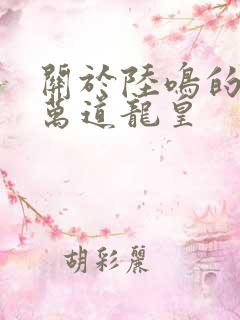 關於陸鳴的
萬道龍皇
胡彩麗